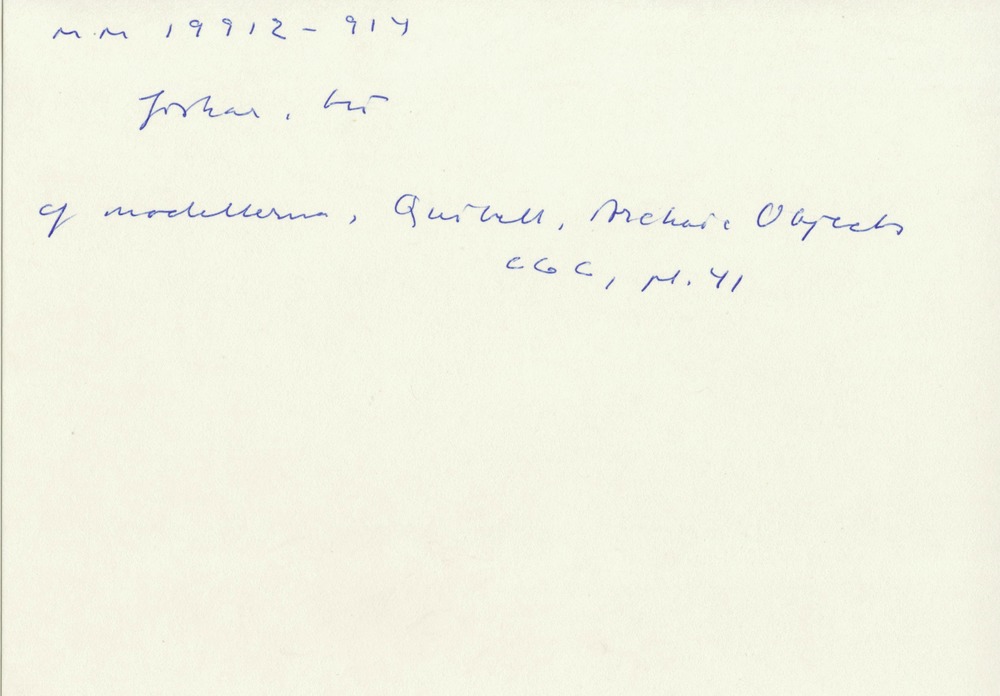 MM 19912-914
cf modellerna, Quibell, Archaic Objects
CGC, pl. 41